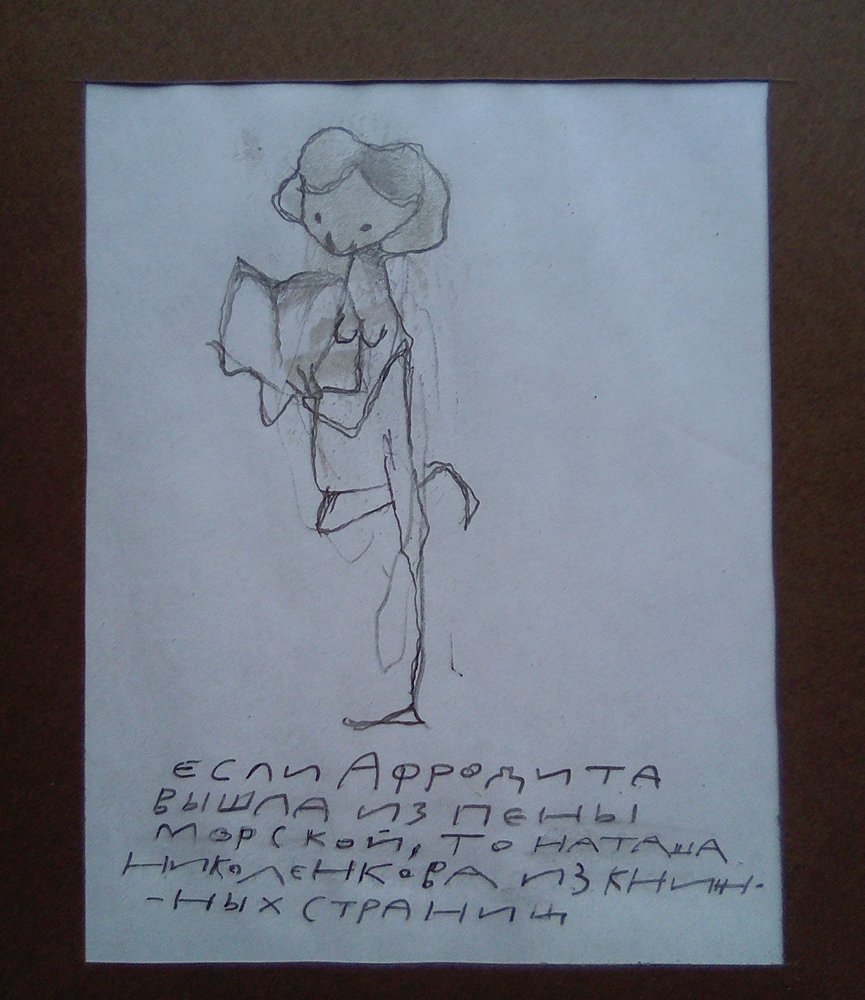 если Афродита
вышла из пены
морской, то Наташа
Николенкова из книж-
-ных страниц